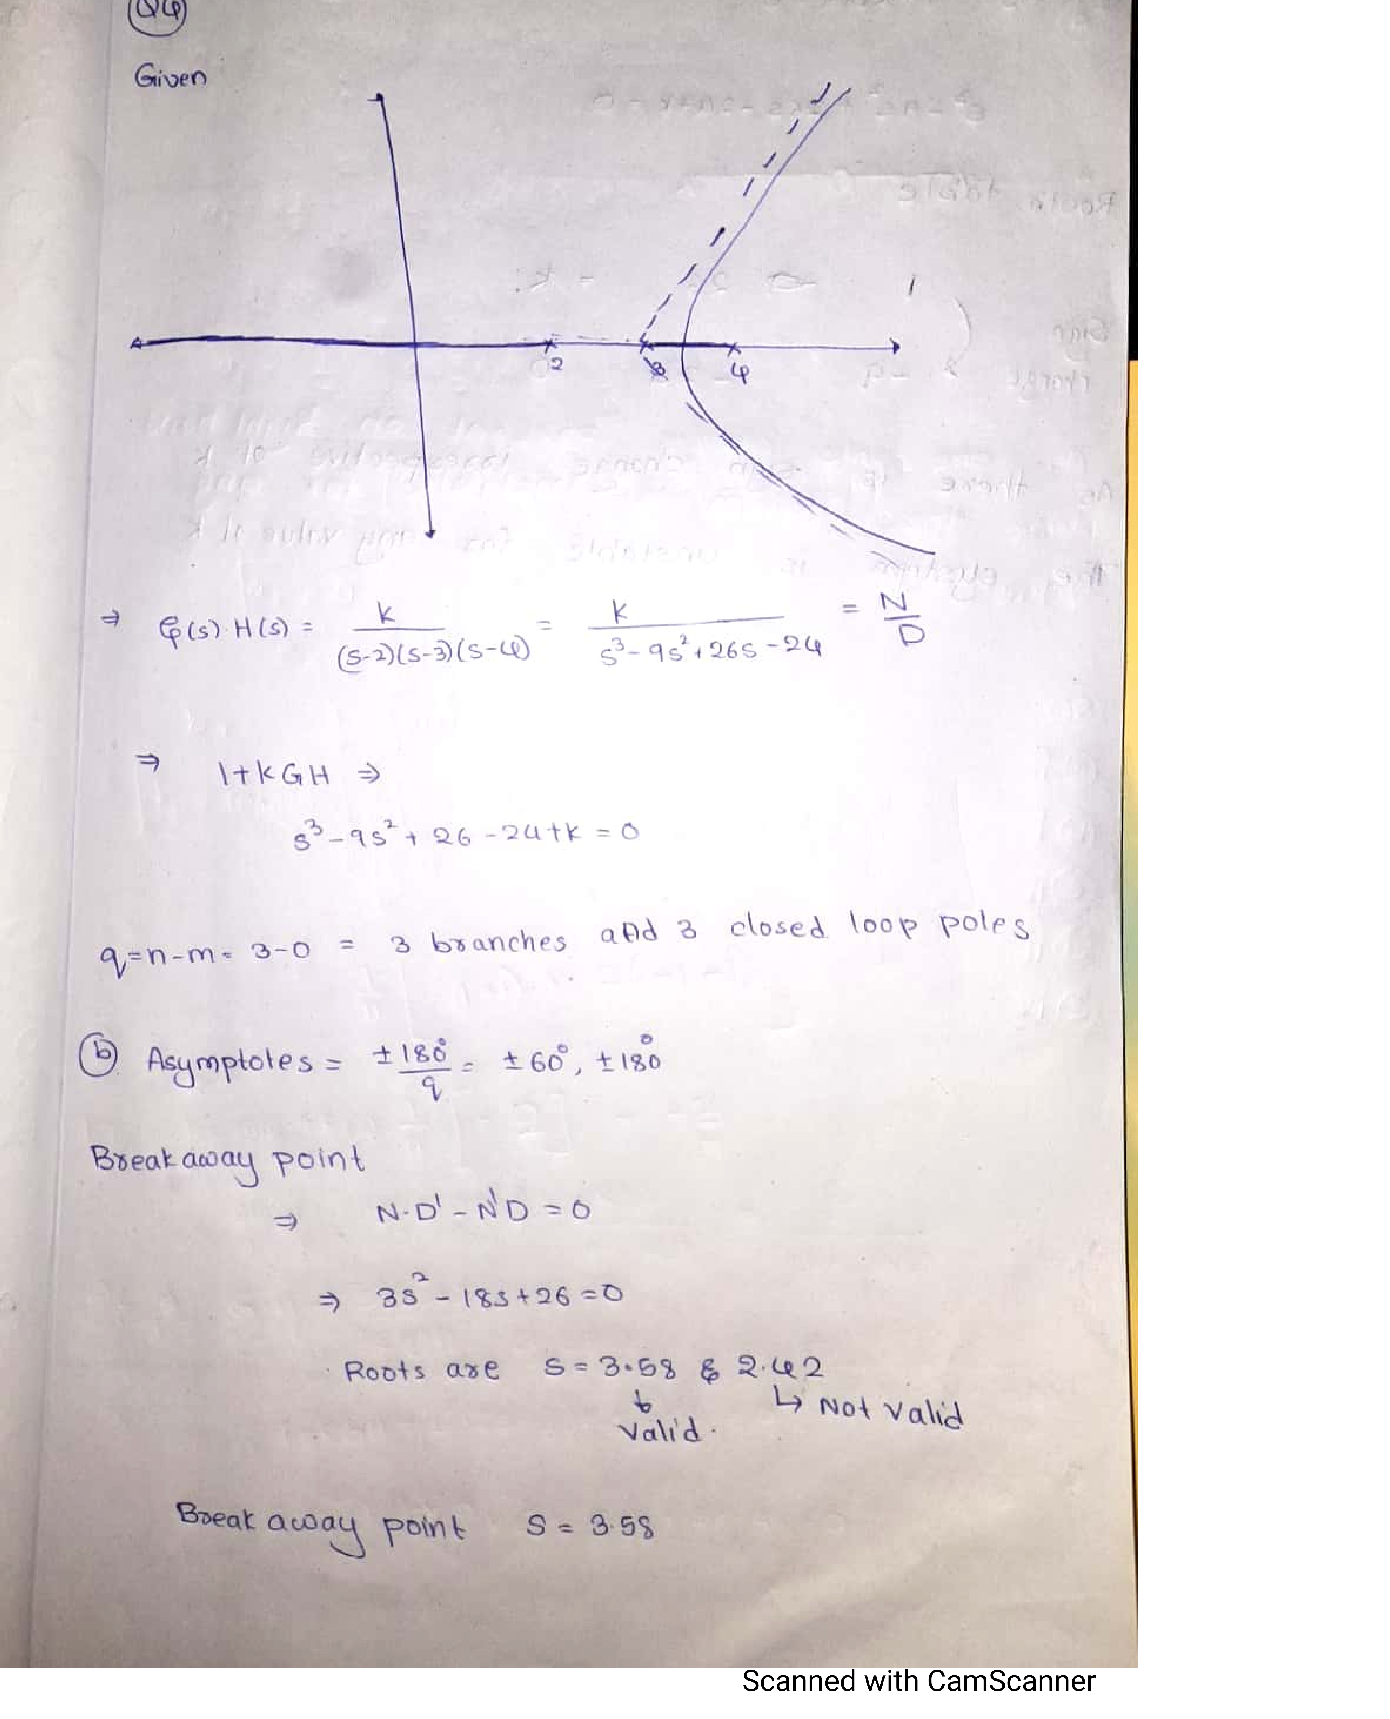 Q4
Given
2 3 4
⇒ G(s)·H(s) = k / (s-2)(s-3)(s-4) = k / s³-9s²+26s-24 = N/D
⇒ 1+kGH ⇒
s³-9s²+26-24+k=0
q=n-m= 3-0 = 3 branches and 3 closed loop poles
(b) Asymptotes = ±180°/q = ±60°, ±180°
Breakaway point
⇒ N·D' - N'D = 0
⇒ 3s²-18s+26=0
Roots are s=3.58 & 2.42
↓ ↳ Not valid
valid.
Break away point s = 3.58
Scanned with CamScanner